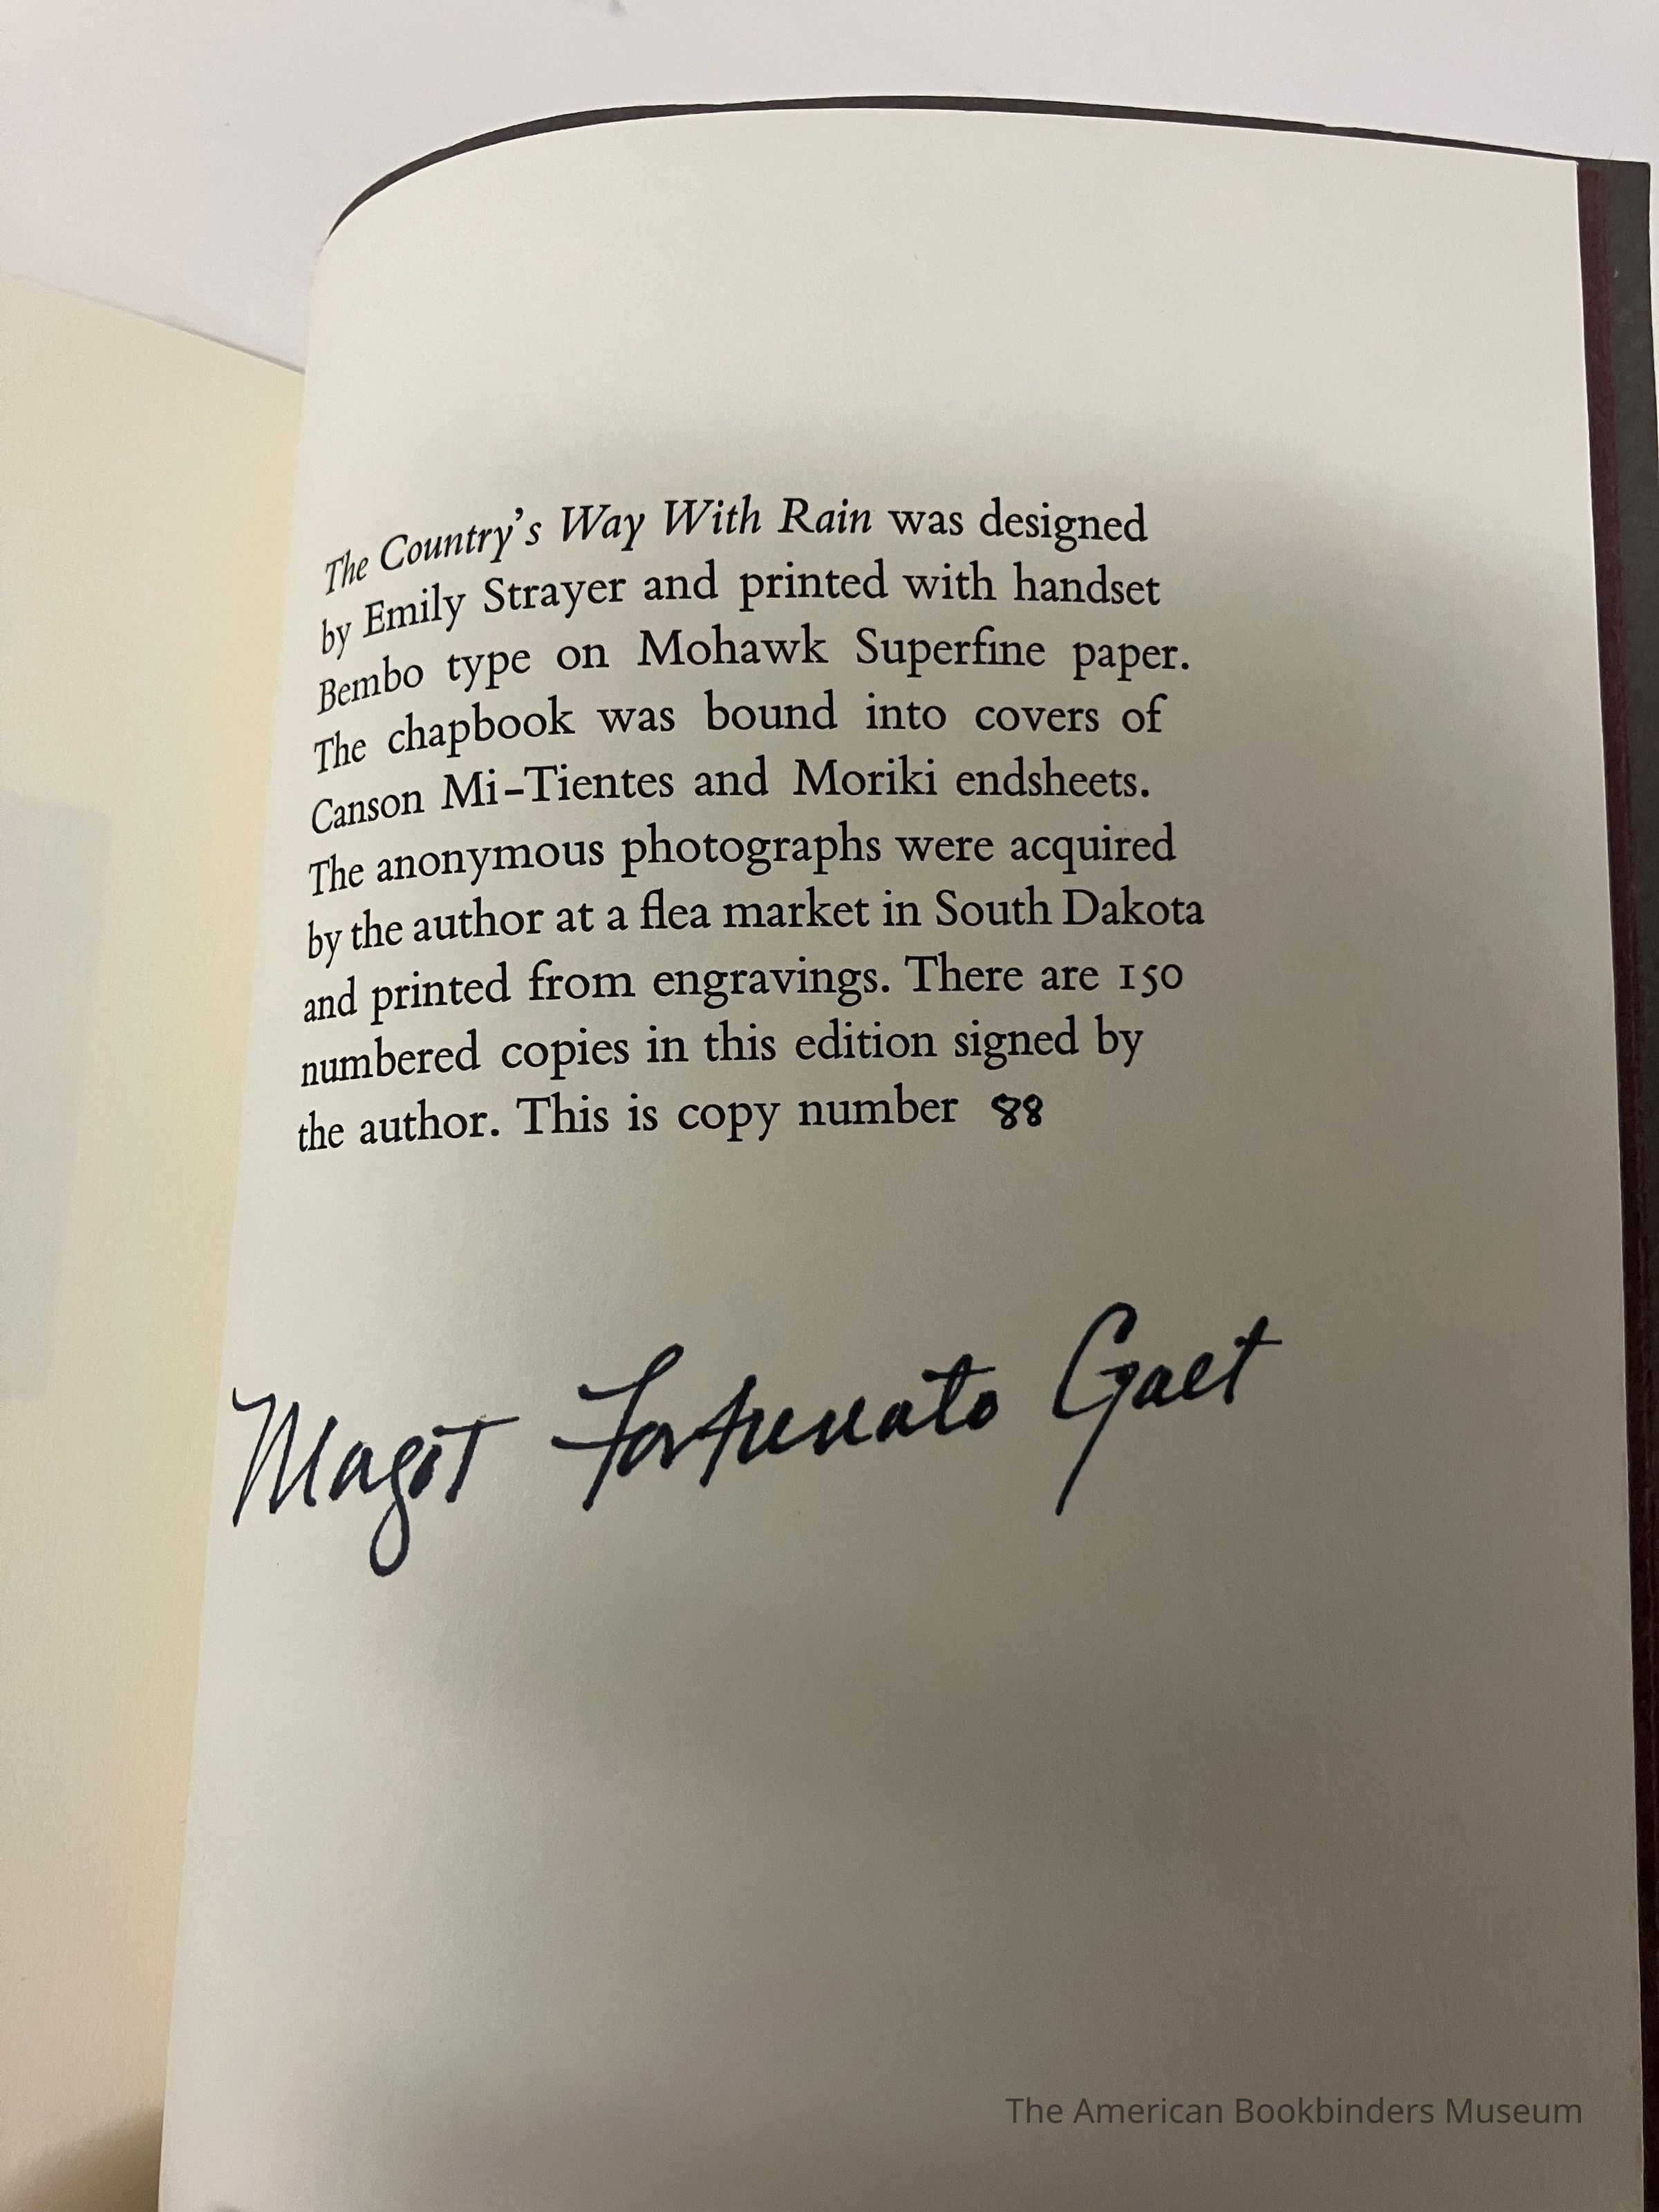 The Country's Way With Rain was designed
by Emily Strayer and printed with handset
Bembo type on Mohawk Superfine paper.
The chapbook was bound into covers of
Canson Mi-Tientes and Moriki endsheets.
The anonymous photographs were acquired
by the author at a flea market in South Dakota
and printed from engravings. There are 150
numbered copies in this edition signed by
the author. This is copy number 88
Margot Fortunato Galt
The American Bookbinders Museum